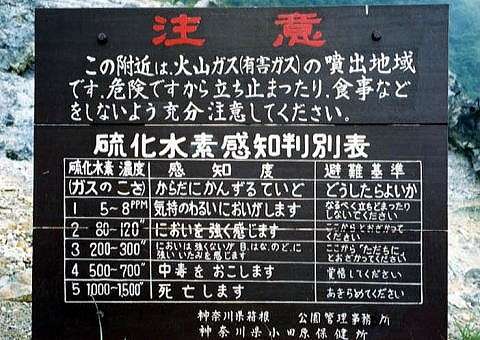 注意
この附近は、火山ガス(有害ガス)の噴出地域
です、危険ですから立ち止まったり、食事など
をしないよう充分注意してください。
硫化水素感知判別表
硫化水素濃度 感知度 避難基準
(ガスのこさ) からだにかんずるていど どうしたらよいか
1 5~8PPM 気持のわるいにおいがします なるべく立ちどまったり
しないでください
2 80~120〃 においを強く感じます ここからとおざかって
ください
3 200~300〃 においは強くないが目、はな、のど、に
強いいたみを感じます ここから〝ただちに〟
とおざかってください
4 500~700〃 中毒をおこします 覚悟してください
5 1000~1,500〃 死亡します あきらめてください
神奈川県箱根 公園管理事務所
神奈川県小田原保健所